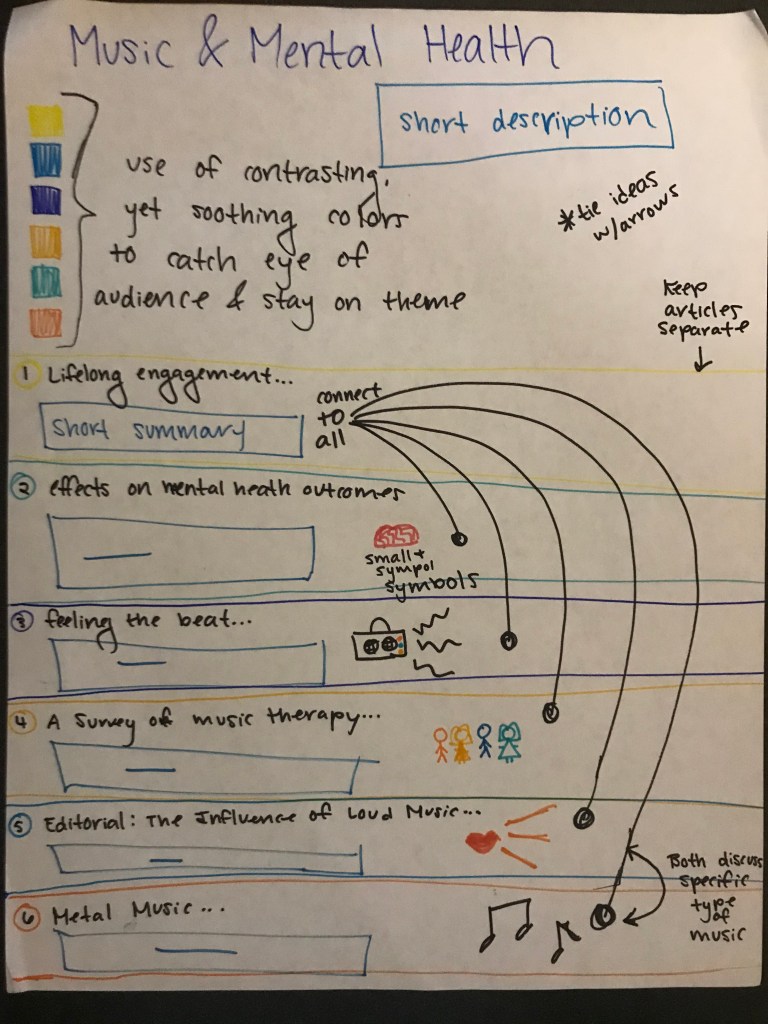 Music & Mental Health
short description
use of contrasting,
yet soothing colors
to catch eye of
audience & stay on theme
*tie ideas
w/arrows
Keep
articles
separate
1 Lifelong engagement...
short summary
connect
to
all
2 effects on mental heath outcomes
small +
sympol
symbols
3 feeling the beat...
4 A Survey of music therapy...
5 Editorial: The Influence of Loud Music...
Both discuss
specific
type
of
music
6 Metal Music...